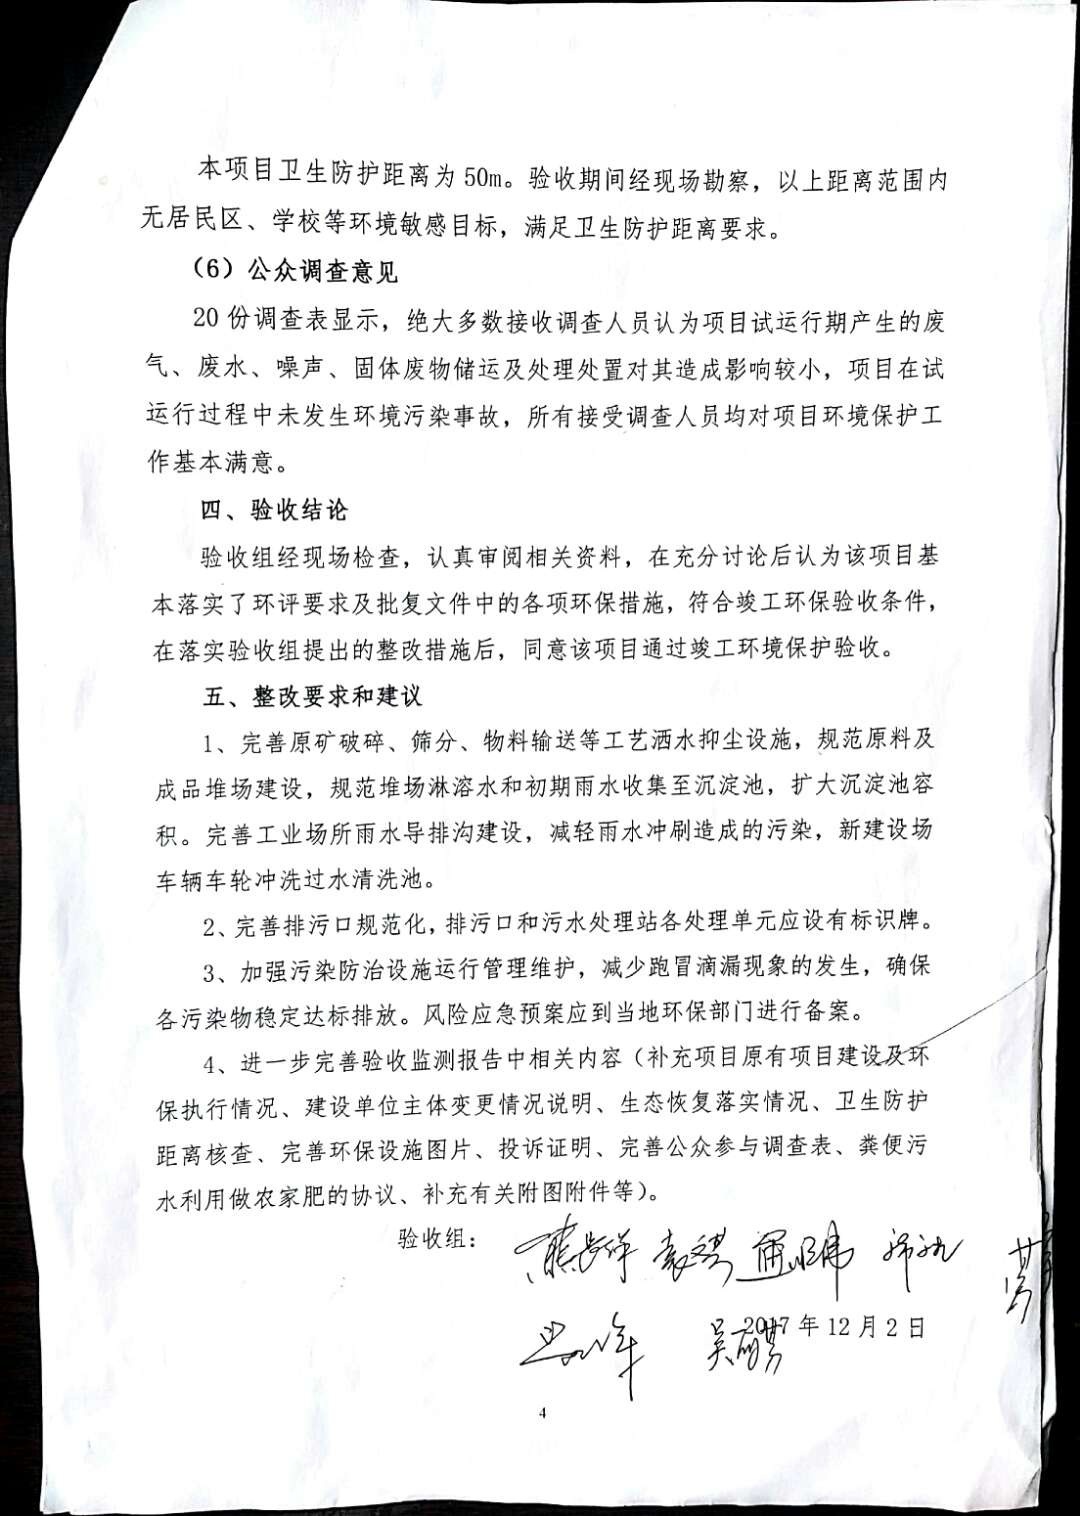 本项目卫生防护距离为 50m。验收期间经现场勘察，以上距离范围内
无居民区、学校等环境敏感目标，满足卫生防护距离要求。
（6）公众调查意见
20 份调查表显示，绝大多数接收调查人员认为项目试运行期产生的废
气、废水、噪声、固体废物储运及处理处置对其造成影响较小，项目在试
运行过程中未发生环境污染事故，所有接受调查人员均对项目环境保护工
作基本满意。
四、验收结论
验收组经现场检查，认真审阅相关资料，在充分讨论后认为该项目基
本落实了环评要求及批复文件中的各项环保措施，符合竣工环保验收条件，
在落实验收组提出的整改措施后，同意该项目通过竣工环境保护验收。
五、整改要求和建议
1、完善原矿破碎、筛分、物料输送等工艺洒水抑尘设施，规范原料及
成品堆场建设，规范堆场淋溶水和初期雨水收集至沉淀池，扩大沉淀池容
积。完善工业场所雨水导排沟建设，减轻雨水冲刷造成的污染，新建设场
车辆车轮冲洗过水清洗池。
2、完善排污口规范化，排污口和污水处理站各处理单元应设有标识牌。
3、加强污染防治设施运行管理维护，减少跑冒滴漏现象的发生，确保
各污染物稳定达标排放。风险应急预案应到当地环保部门进行备案。
4、进一步完善验收监测报告中相关内容（补充项目原有项目建设及环
保执行情况、建设单位主体变更情况说明、生态恢复落实情况、卫生防护
距离核查、完善环保设施图片、投诉证明、完善公众参与调查表、粪便污
水利用做农家肥的协议、补充有关附图附件等）。
验收组：
2017 年 12 月 2 日
4